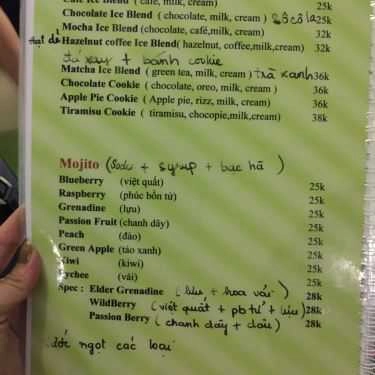 Cafe Ice Blend ( cafe, milk, cream) 25k
Chocolate Ice Blend ( chocolate, milk, cream ) Sôcôla 25k
Mocha Ice Blend (chocolate, café,milk, cream) 32k
Hazelnut coffee Ice Blend( hazelnut, coffee,milk,cream) 32k
đá xay + bánh cookie
Matcha Ice Blend ( green tea, milk, cream ) trà xanh 36k
Chocolate Cookie ( chocolate, oreo, milk, cream ) 36k
Apple Pie Cookie ( Apple pie, rizz, milk, cream) 36k
Tiramisu Cookie ( tiramisu, chocopie,milk,cream) 38k
Mojito (Soda + syrup + bạc hà )
Blueberry (việt quất) 25k
Raspberry (phúc bồn tử) 25k
Grenadine (lựu) 25k
Passion Fruit (chanh dây) 25k
Peach (đào) 25k
Green Apple (táo xanh) 25k
Kiwi (kiwi) 25k
Lychee (vải) 25k
Spec : Elder Grenadine ( lựu + hoa vải ) 28k
WildBerry (việt quất + pb tử + lựu) 28k
Passion Berry ( chanh dây + dâu) 28k
ngọt các loại